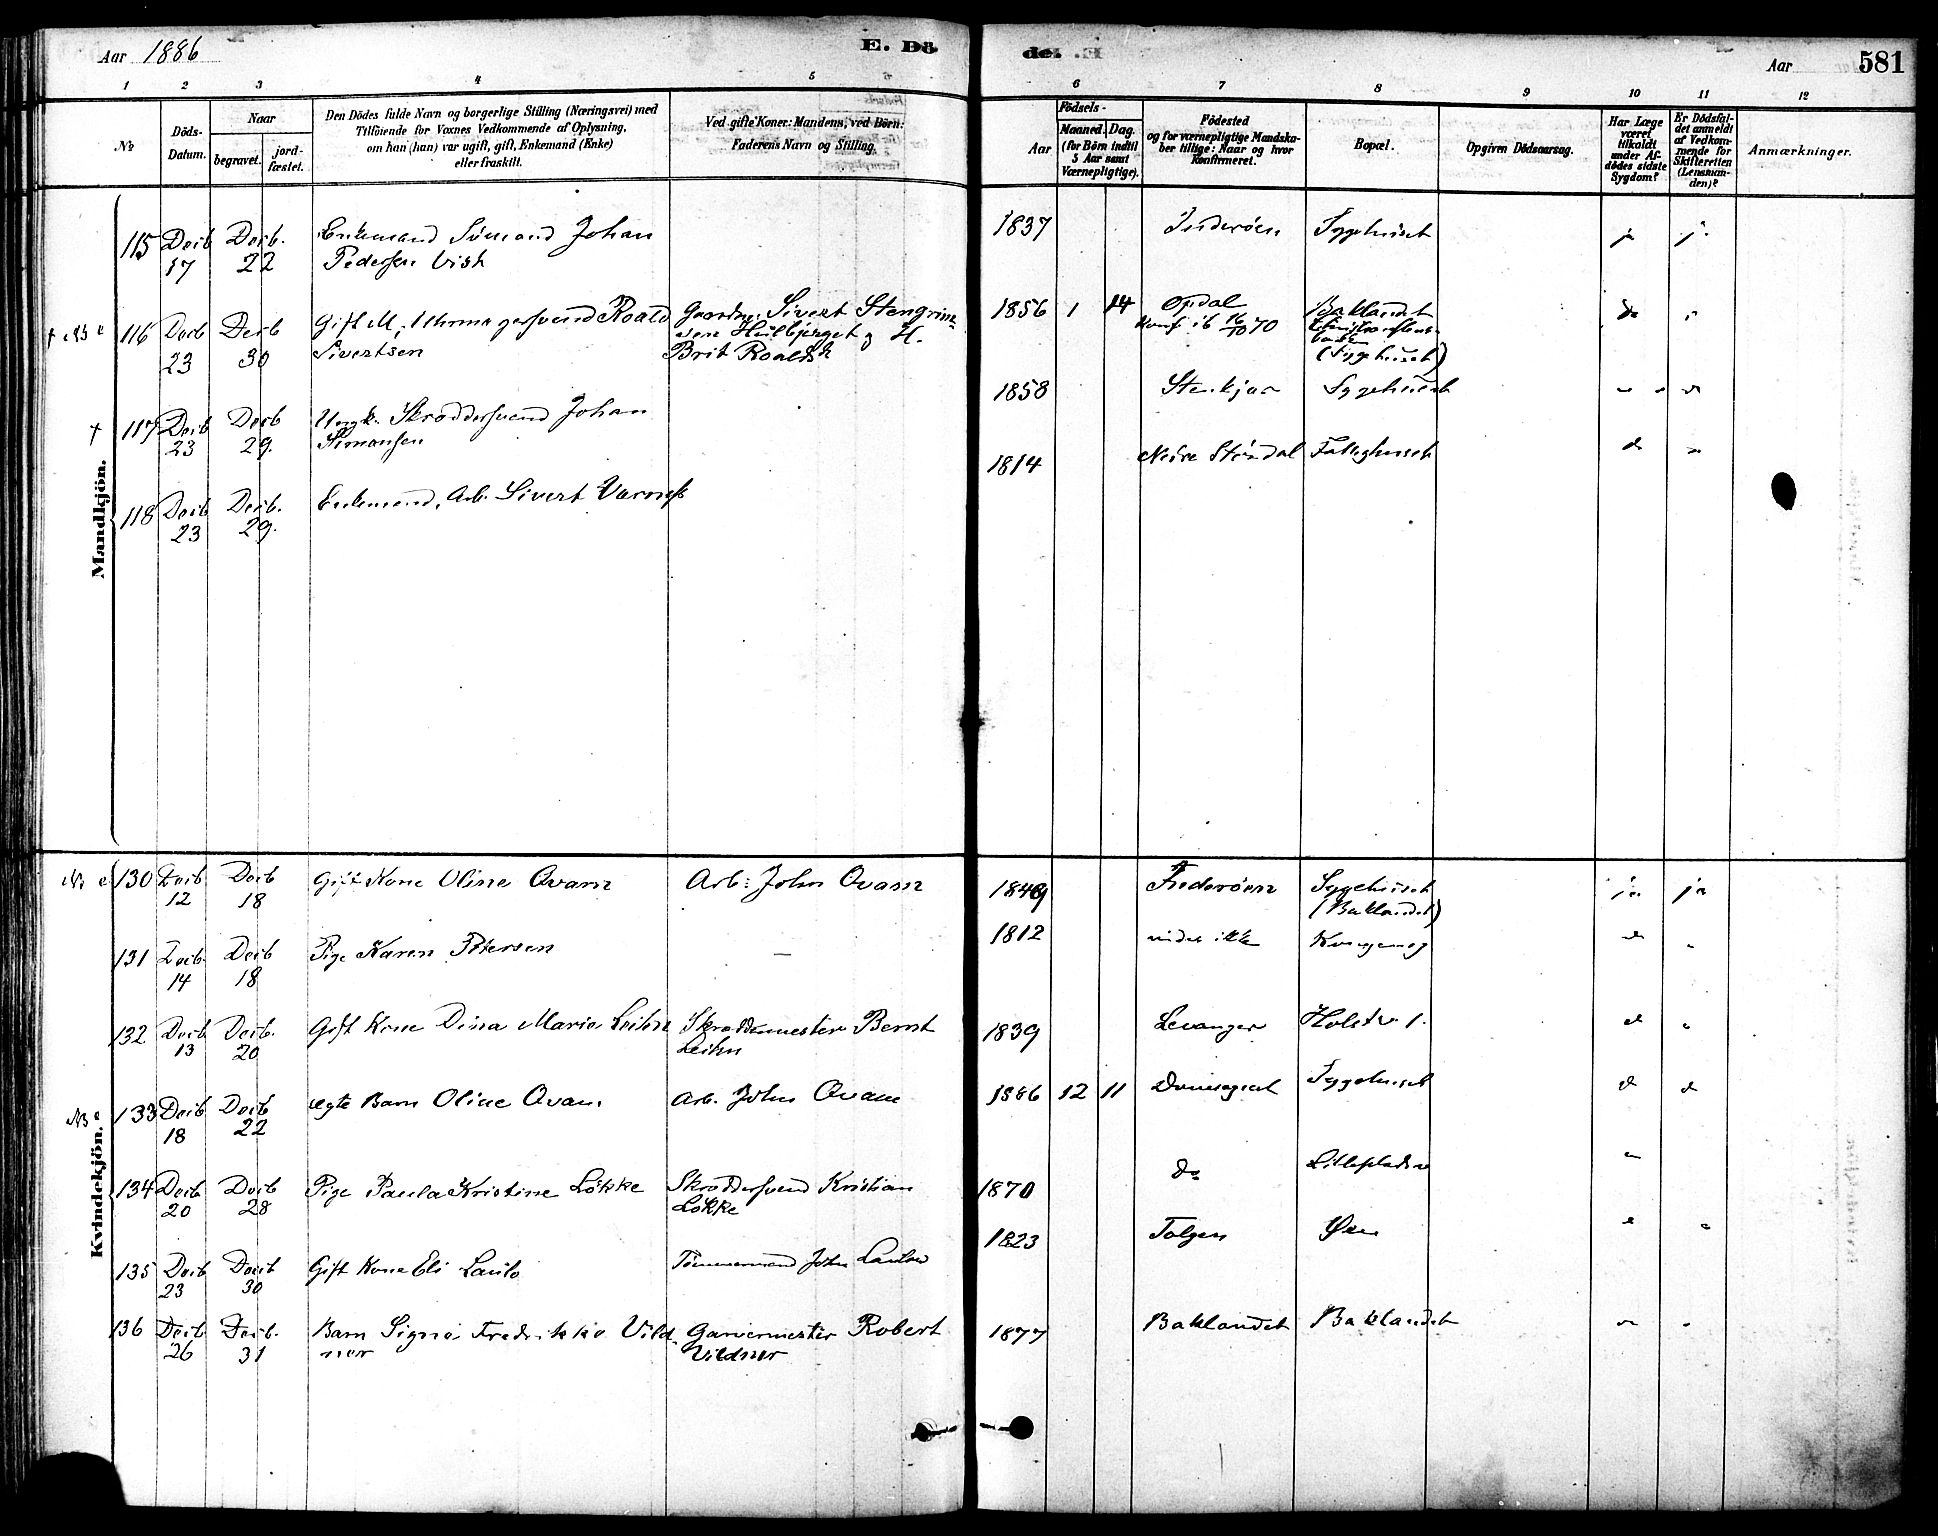 Aar 1886
E. Dö
1 2 3 4 5
No
Döds-
Datum.
Naar
begravet.
jord-
fæstet.
Den Dödes fulde Navn og borgerlige Stilling (Næringsvei) med
Tilföiende for Voxnes Vedkommende af Oplysning,
om han (hun) var ugift, gift, Enkemand (Enke)
eller fraskilt.
Ved gifte Koner: Mandens, ved Börn:
Faderens Navn og Stilling.
Mandkjön.
115 Decb Decb. Enkemand Sömand Johan
17 22 Pedersen Vist
116 Decb Decb Gift M. Uhrmagersvend Roald Gaardm. Sivert Stengrim-
23 30 Sivertsen sen og H.
Brit Roaldsd
† 117 Decb Decb Ungk. Skræddersvend Johan
23 29. Simonsen
118 Decb Decb. Enkemand, Arb. Sivert Værnes
23 29.
Kvindekjön.
130 Decb Decb Gift Kone Oline Qvam Arb: John Qvam
12 18
131 Decb. Decb Pige Karen Petersen —
14 18
132 Decb Decb. Gift Kone Dina Marie Leihn Skræddermester Bernt
13 20 Leihn
133 Decb Decb ægte Barn Oline Qvam Arb. John Qvam
18 22
134 Decb Decb Pige Paula Kristine Lökke Skræddersvend Kristian
20 28 Lökke
135 Decb Decb Gift Kone Eli Laulo Tömmermand John Laulo
23 30
136 Decb Decb. Barn Signe Fredrikke Vild- Garvermester Robert
26 31 ner Vildner
de.
Aar 581
6 7 8 9 10 11 12
Aar
Födsels-
Maaned. Dag.
(for Börn indtil
5 Aar samt
Værnepligtige).
Födested
og for værnepligtige Mandska-
ber tillige: Naar og hvor
Konfirmeret.
Bopæl.
Opgiven Dödsaarsag.
Har Læge
været
tilkaldt
under Af-
dödes sidste
Sygdom?
Er Dödsfal-
det anmeldt
af Vedkom-
mende for
Skifteretten
(Lensman-
den)?
Anmærkninger.
1837 Inderöen Sygehuset ja j.
1856 1 14 Opdal Baklandet do
Konf ib 16/10 70
(Sygehuset)
1858 Stenkjær Sygehuset
1814 Nedre Stördal Fattighuset
1849 Inderöen Sygehuset ja ja
(Baklandet)
1812 vides ikke
1839 Levanger
1886 12 11 Sygehuset
1870 do
1823 Tolgen Öen
1877 Baklandet Baklandet